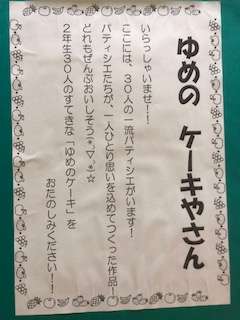 ゆめの ケーキやさん
いらっしゃいませ!!
ここには、30人の一流パティシエがいます!
パティシエたちが、一人ひとり思いを込めてつくった作品!
どれもぜんぶおいしそう(*▽*)☆
2年生30人のすてきな「ゆめのケーキ」を
おたのしみください!!